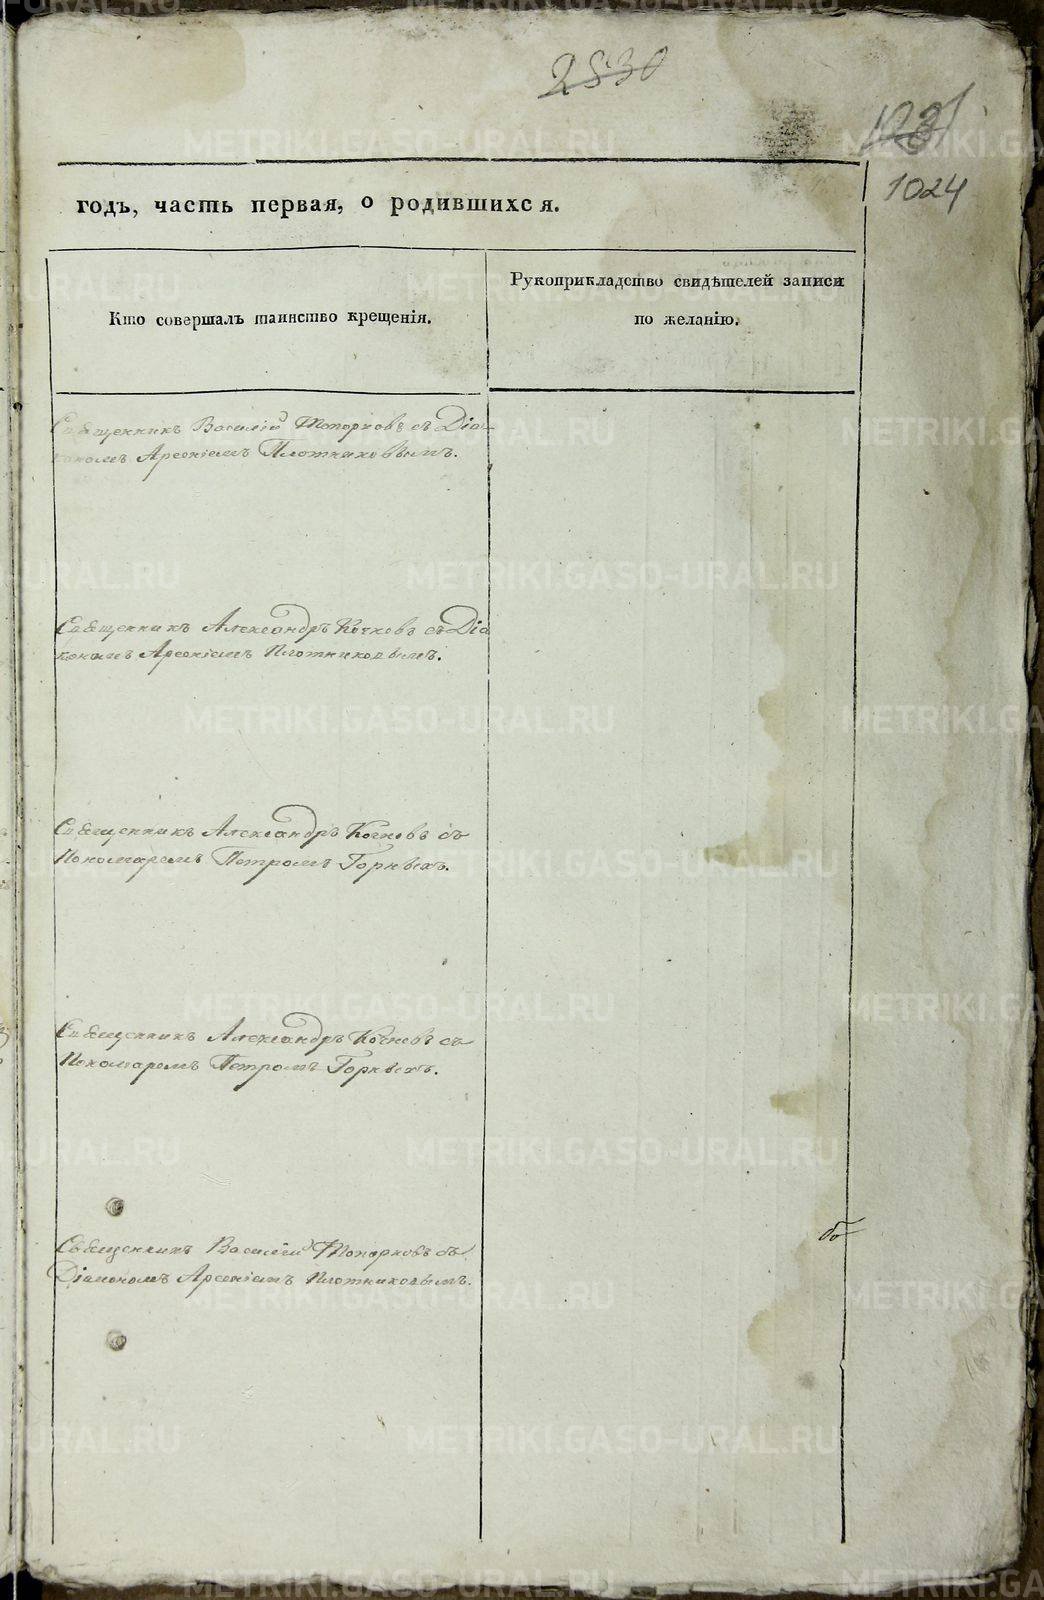 2830
123
1024
годъ, часть первая, о родившихся.
Кто совершалъ таинство крещенія.
Рукоприкладство свидѣтелей записи
по желанію.
Священникъ Василій Топорковъ съ Діа-
кономъ Арсеніемъ Плотниковымъ.
Священникъ Александръ Кочневъ съ Діа
кономъ Арсеніемъ Плотниковымъ.
Священникъ Александръ Кочневъ съ
Пономаремъ Петромъ Горныхъ.
Священникъ Александръ Кочневъ съ
Пономаремъ Петромъ Горныхъ.
Священникъ Василій Топорковъ съ
Діакономъ Арсеніемъ Плотниковымъ.
METRIKI.GASO-URAL.RU